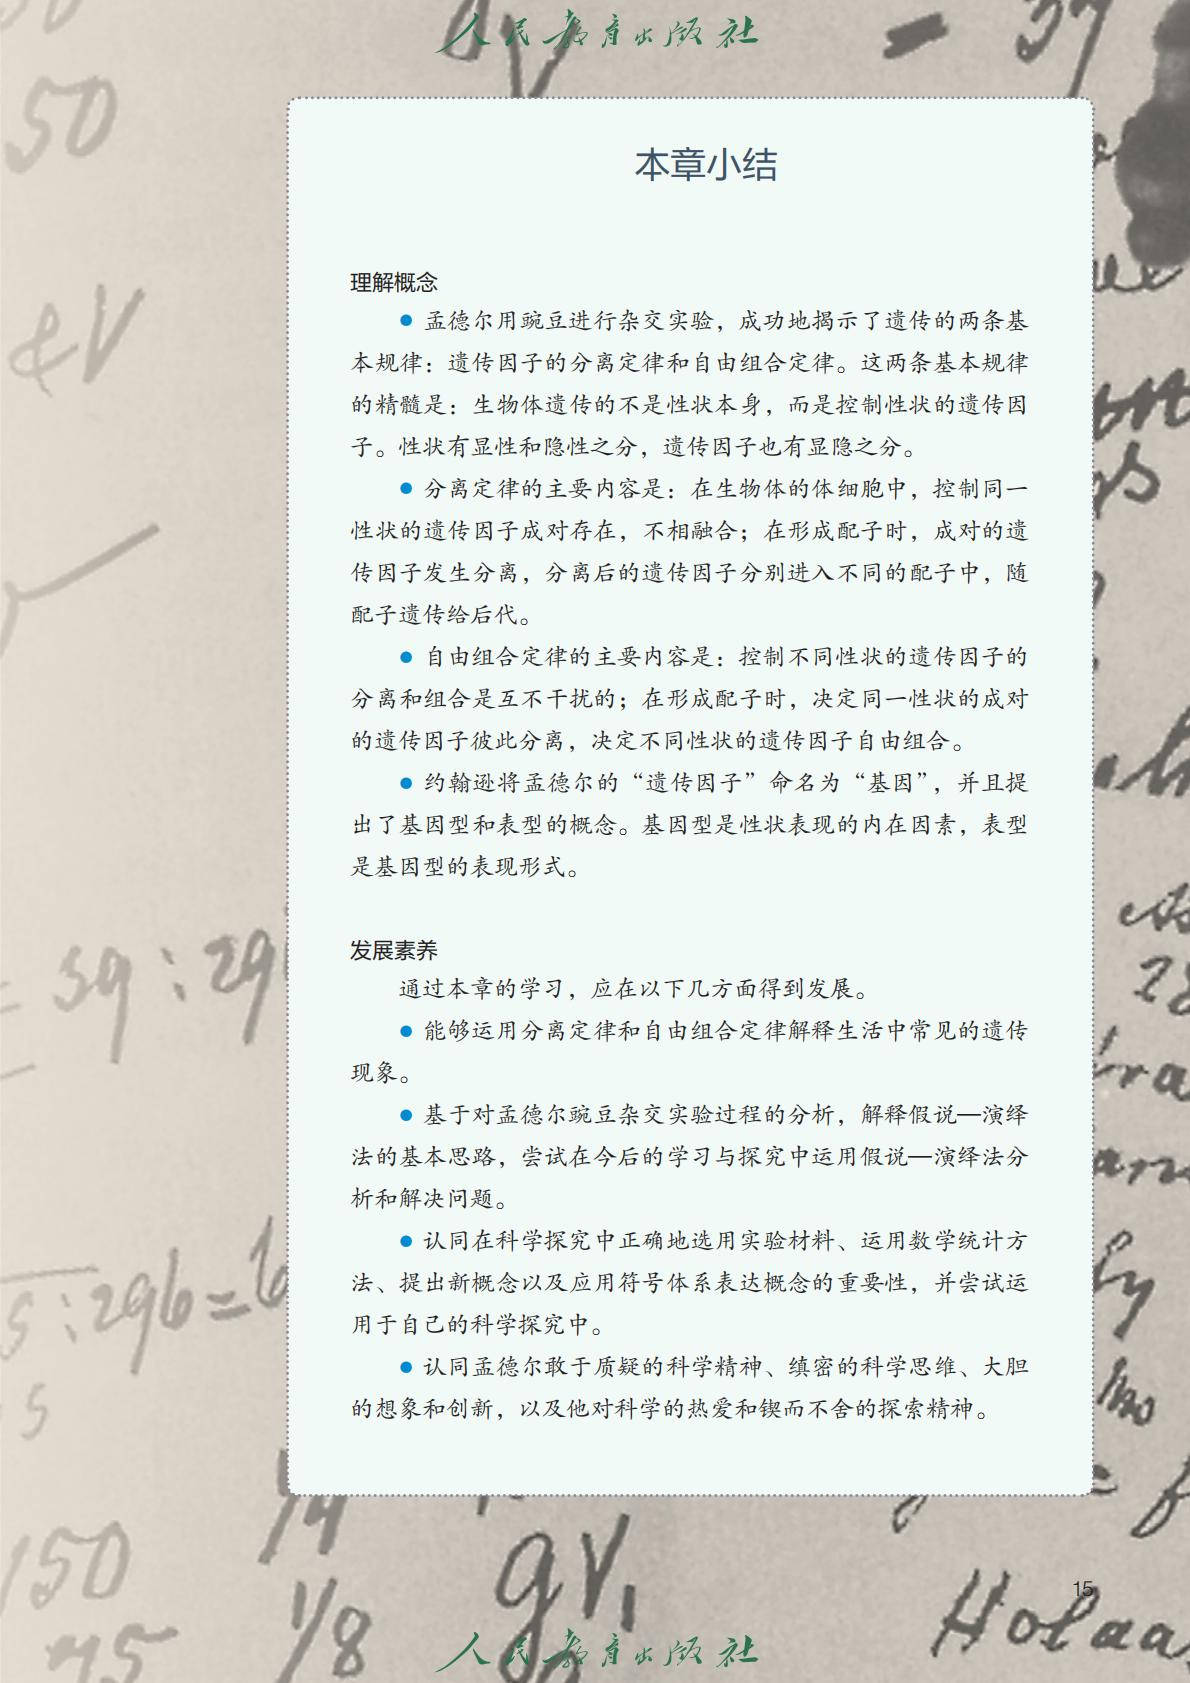 人民教育出版社
本章小结
理解概念
● 孟德尔用豌豆进行杂交实验，成功地揭示了遗传的两条基
本规律：遗传因子的分离定律和自由组合定律。这两条基本规律
的精髓是：生物体遗传的不是性状本身，而是控制性状的遗传因
子。性状有显性和隐性之分，遗传因子也有显隐之分。
● 分离定律的主要内容是：在生物体的体细胞中，控制同一
性状的遗传因子成对存在，不相融合；在形成配子时，成对的遗
传因子发生分离，分离后的遗传因子分别进入不同的配子中，随
配子遗传给后代。
● 自由组合定律的主要内容是：控制不同性状的遗传因子的
分离和组合是互不干扰的；在形成配子时，决定同一性状的成对
的遗传因子彼此分离，决定不同性状的遗传因子自由组合。
● 约翰逊将孟德尔的“遗传因子”命名为“基因”，并且提
出了基因型和表型的概念。基因型是性状表现的内在因素，表型
是基因型的表现形式。
发展素养
通过本章的学习，应在以下几方面得到发展。
● 能够运用分离定律和自由组合定律解释生活中常见的遗传
现象。
● 基于对孟德尔豌豆杂交实验过程的分析，解释假说—演绎
法的基本思路，尝试在今后的学习与探究中运用假说—演绎法分
析和解决问题。
● 认同在科学探究中正确地选用实验材料、运用数学统计方
法、提出新概念以及应用符号体系表达概念的重要性，并尝试运
用于自己的科学探究中。
● 认同孟德尔敢于质疑的科学精神、缜密的科学思维、大胆
的想象和创新，以及他对科学的热爱和锲而不舍的探索精神。
50
= 39 : 29
5 : 296 =
5
150
1/4
1/8
75
15
人民教育出版社